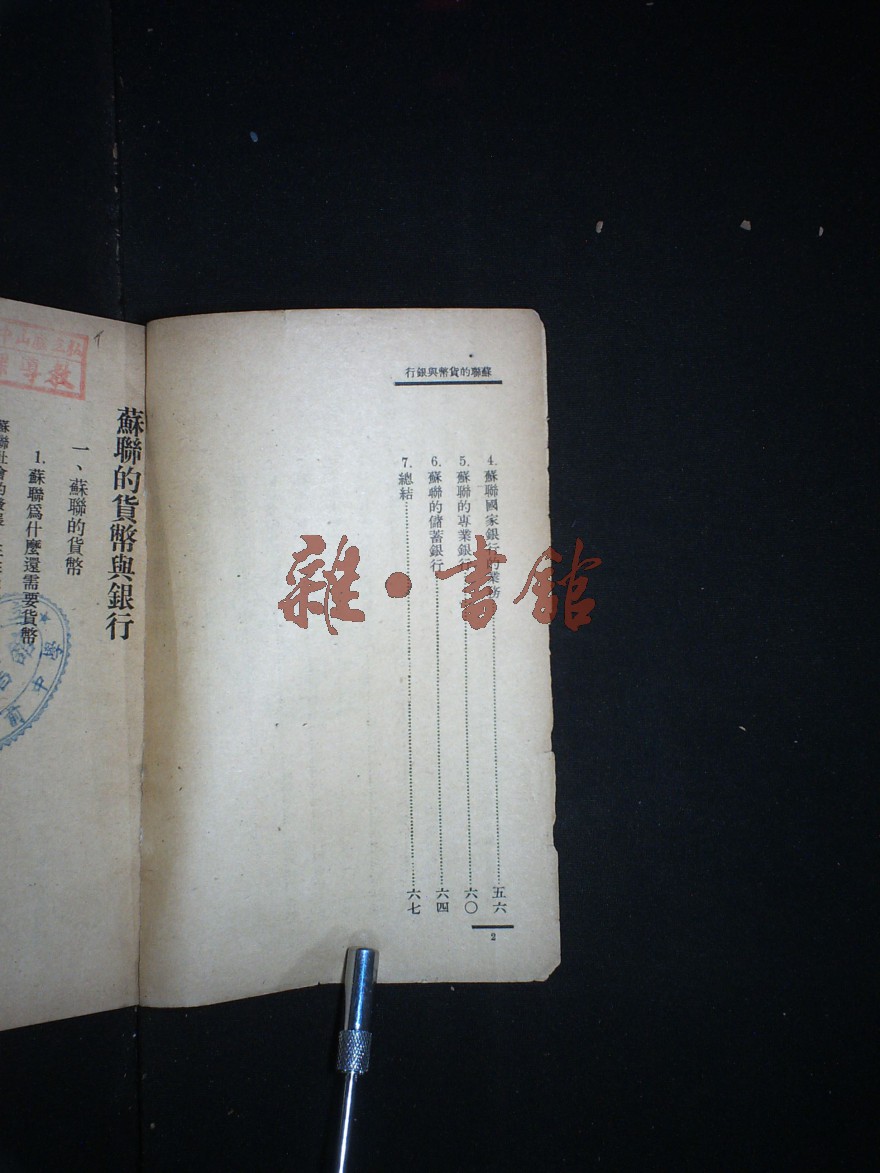 行銀與幣貨的聯蘇
4. 蘇聯國家銀行的業務……五六
5. 蘇聯的專業銀行……六〇
6. 蘇聯的儲蓄銀行……六四
7. 總結……六七
2
蘇聯的貨幣與銀行
一、蘇聯的貨幣
1. 蘇聯爲什麼還需要貨幣
雜·書館